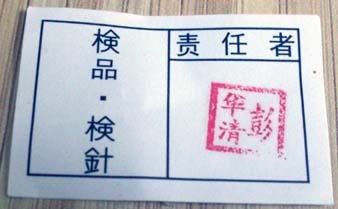 検品・検針
责任者
彭华清